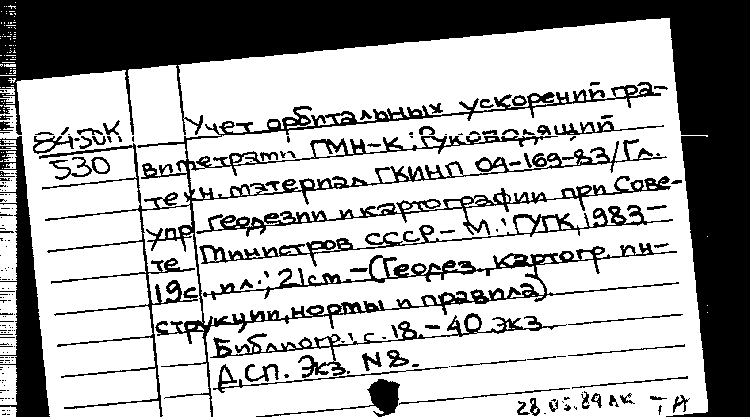 84-50К
530
Учет орбитальных ускорений гра-
виметрами ГМН-К : Руководящий
техн. материал ГКИНП 04-169-83/Гл.
упр. геодезии и картографии при Сове-
те Министров СССР.- М.: ГУГК, 1983-
19с., ил.; 21см.-(Геодез., картогр. ин-
струкции, нормы и правила).
Библиогр.: с. 18.-40 экз.
Д.СП. Экз. N8.
28.05.84